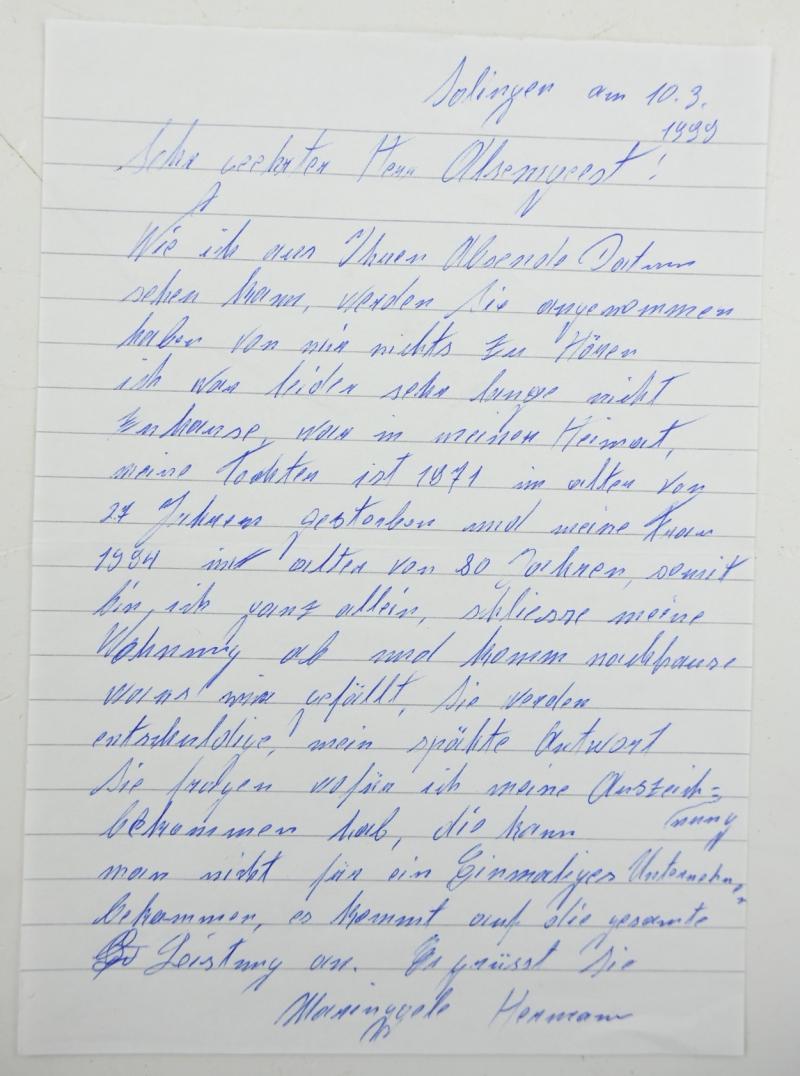 Solingen am 10.3.
1999
Sehr geehrter Herr Alsemgeest!
Wie ich aus Ihren Absende Datum
sehen kann, werden Sie angenommen
haben von mir nichts zu Hören
ich war leider sehr lange nicht
zuhause, war in meiner Heimat,
meine Tochter ist 1971 im alter von
27 Jahren gestorben und meine Frau
1994 im alter von 80 Jahren, somit
bin, ich ganz allein, schliesse meine
Wohnung ab und komm nachhause
wans mir gefällt, Sie werden
entschuldige, mein spähte Antwort
Sie fragen wofür ich meine Auszeich=
nung
bekommen hab, die kann
man nicht für ein Einmaliges Unternehmen
bekommen, es kommt auf die gesamte
Leistung an. Es grüsst Sie
Hermann